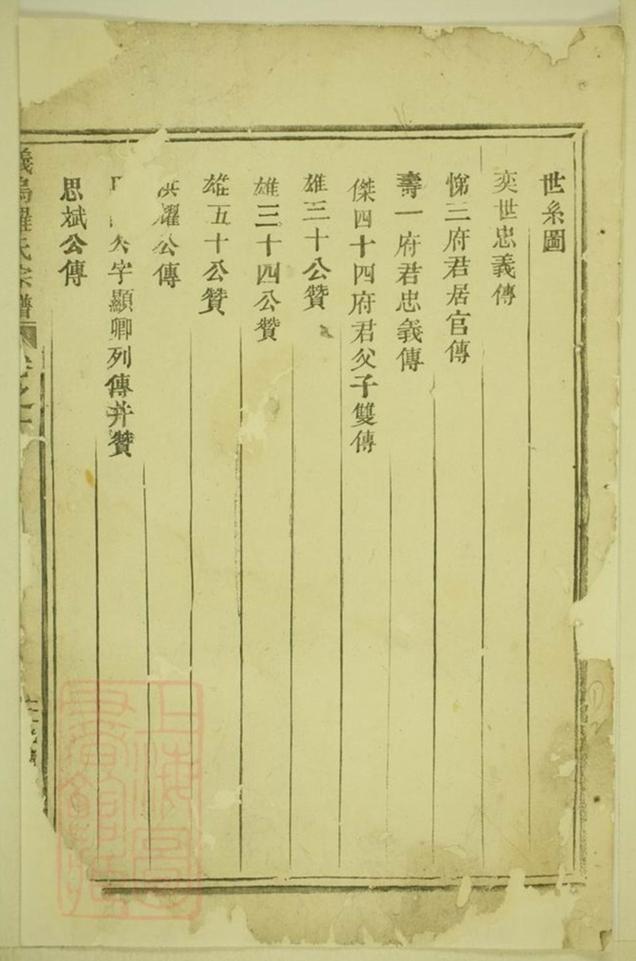 世系圖
奕世忠義傳
悌三府君居官傳
壽一府君忠義傳
傑四十四府君父子雙傳
雄三十公贊
雄三十四公贊
雄五十公贊
耀公傳
字顯卿列傳并贊
思斌公傳
義烏羅氏宗譜